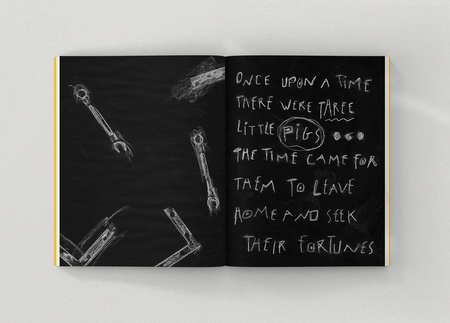 ONCE UPON A TIME
THERE WERE THREE
LITTLE PIGS ...
THE TIME CAME FOR
THEM TO LEAVE
HOME AND SEEK
THEIR FORTUNES